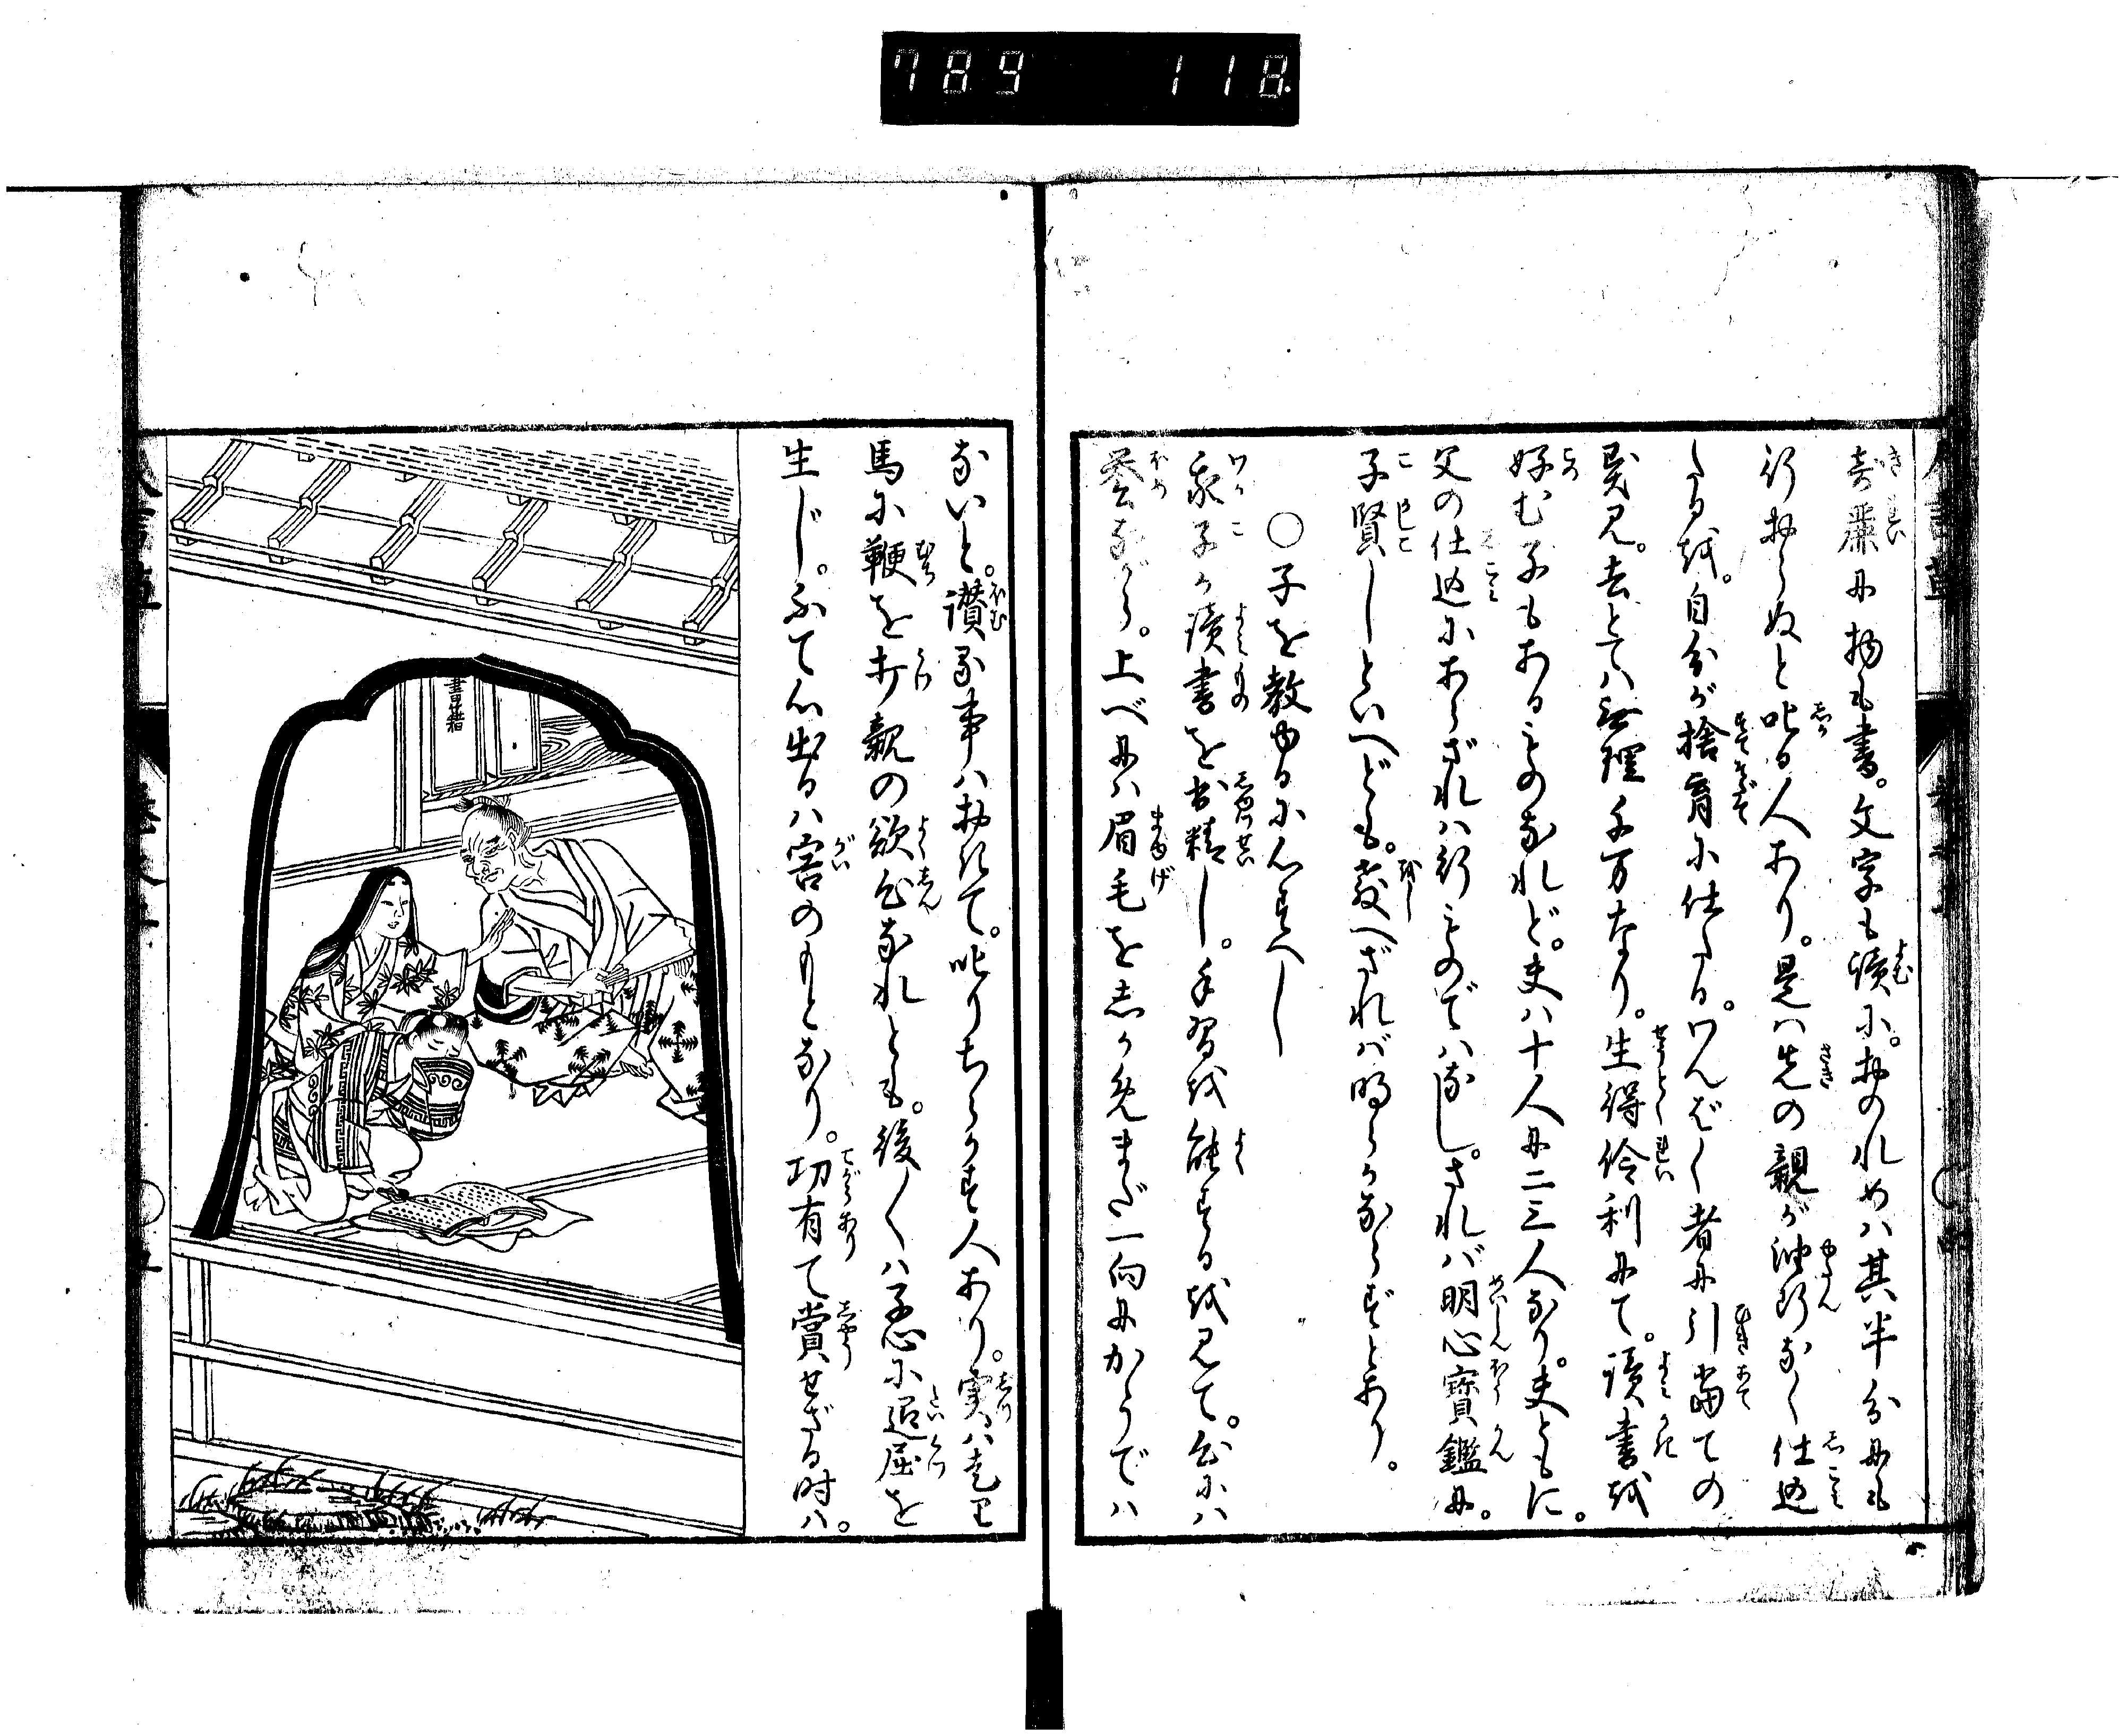 789 118
奇麗に物も書。文字も讀に。おのれめハ其半分にも
行おらぬと叱る人あり。是ハ先の親が油断なく仕込
たるを。自分が捨育に仕たる。わんぱく者に引當ての
異見。去とてハ無理千万なり。生得伶利にて。讀書を
好む子もあるものなれど。夫ハ十人に二三人なり。夫ともに。
父の仕込にあらざれハ行ものでハなし。されバ明心寶鑑に。
子賢しといへども。教へざれバ明らかならずとあり。
○子を教ゆるに心すべし
我子の讀書を出精し。手習を能するを見て。心にハ
誉ながら。上べにハ眉毛をしかめまだ一向にかうでハ
ないと。讃る事ハおきて。叱りちらかす人あり。実ハ走る
馬に鞭を打親の欲心なれとも。後〱ハ子心に退屈を
生じ。ふて心出るハ害のもとなり。功有て賞せざる時ハ。
書籍